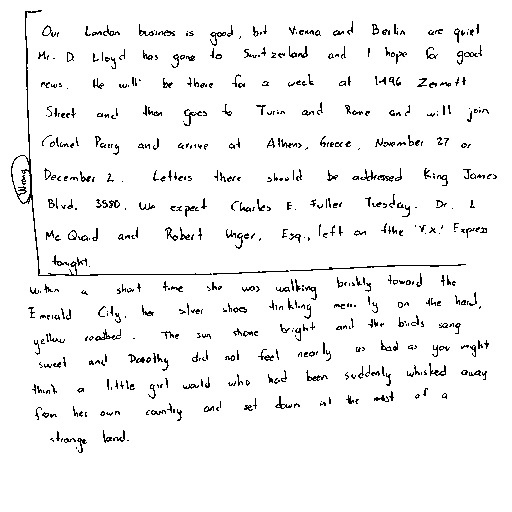 Our London business is good, but Vienna and Berlin are quiet
Mr. D. Lloyd has gone to Switzerland and I hope for good
news. He will be there for a week at 1496 Zermott
Street and then goes to Turin and Rome and will join
Colonel Parry and arrive at Athens, Greece, November 27 or
December 2. Letters there should be addressed King James
Blvd. 3580. We expect Charles E. Fuller Tuesday. Dr. L
Mc Quaid and Robert Unger, Esq., left on the 'V.X.' Express
tonight.
Wrong
Within a short time she was walking briskly toward the
Emerald City, her silver shoes tinkling on the hard,
yellow roadbed. The sun shone bright and the birds sang
sweet and Dorothy did not feel nearly as bad as you might
think a little girl would who had been suddenly whisked away
from her own country and set down in the of a
strange land.